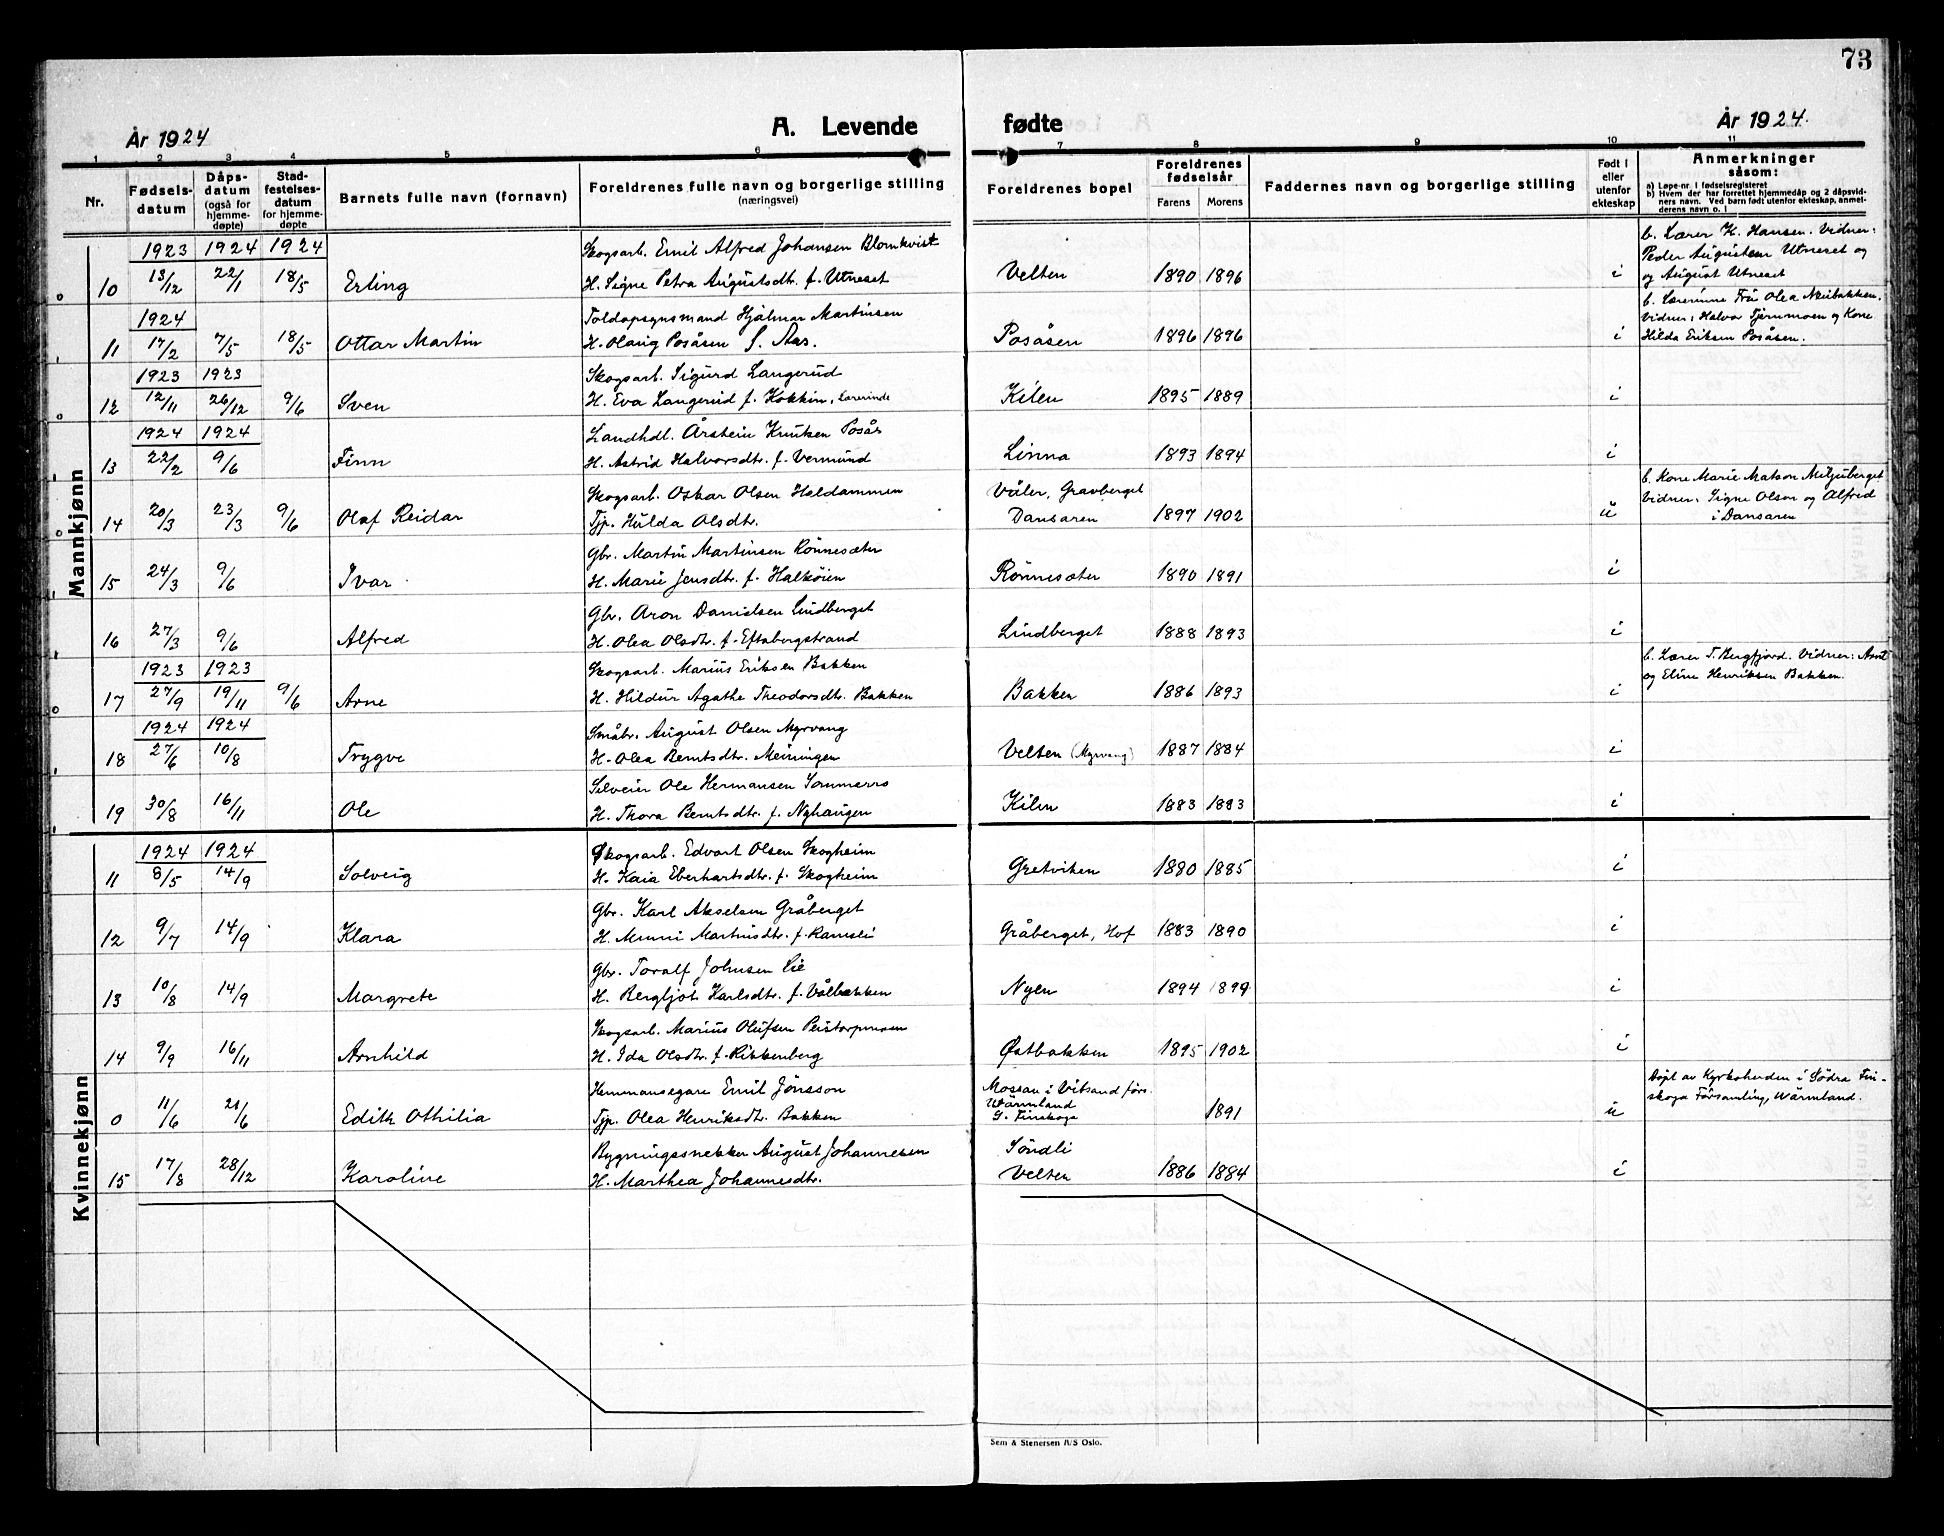 73
År 1924
A. Levende
fødte
År 1924.
1 2 3 4 5 6 7 8 9 10 11
Nr.
Fødsels-
datum
Dåps-
datum
(også for
hjemme-
døpte)
Stad-
festelses-
datum
for hjemme-
døpte
Barnets fulle navn (fornavn)
Foreldrenes fulle navn og borgerlige stilling
(næringsvei)
Foreldrenes bopel
Foreldrenes
fødselsår
Farens Morens
Faddernes navn og borgerlige stilling
Født i
eller
utenfor
ekteskap
Anmerkninger
såsom:
a) Løpe-nr. i fødselsregisteret
b) Hvem der har forrettet hjemmedåp og 2 dåpsvid-
ners navn. Ved barn født utenfor ekteskap, anmel-
derens navn o. l
Mannkjønn
1923 1924 1924 Skogsarb. Emil Alfred Johansen Blomkvist b. Lærer K. Hansen. Vidner:
10 13/12 22/1 18/5 Erling H. Signe Petra Augustsdtr. f. Utneset Velten 1890 1896 i Peder Augustsen Utneset og
og August Utneset
1924 Toldopsynsmand Hjalmar Martinsen b. Lærerinne Fru Olea Neibakken.
11 17/2 7/5 18/5 Ottar Martin H. Olaug Posåsen f. Aas. Posåsen 1896 1896 i Vidner: Halvor Tjernmoen og Kone
Hilda Eriksen Posåsen.
1923 1923 Skogsarb. Sigurd Langerud
12 12/11 26/12 9/6 Sven H. Eva Langerud f. Kokkin, Lærerinde Kilen 1895 1889 i
1924 1924 Landhdl. Årstein Knutsen Posås
13 22/2 9/6 Finn H. Astrid Halvorsdtr. f. Vermund Linna 1893 1894 i
Skogsarb. Oskar Olsen Haldammen Våler, Gravberget b. Kone Marie Matson Miljuberget
14 20/3 23/3 9/6 Olaf Reidar Tjp. Hulda Olsdtr. Dansaren 1897 1902 u Vidner: Signe Olson og Alfred
i Dansaren
Gbr. Martin Martinsen Rönnesæter
15 24/3 9/6 Ivar H. Marie Jensdtr. f. Halköien Rönnesæter 1890 1891 i
Gbr. Aron Danielsen Lindberget
16 27/3 9/6 Alfred H. Olea Olsdtr. f. Eftabergstrand Lindberget 1888 1893 i
1923 1923 Skogsarb. Marius Eriksen Bakken b. Lærer T. Bergfjord. Vidner: Arnt
17 27/9 19/11 9/6 Arne H. Hildur Agathe Theodorsdtr. Bakken Bakken 1886 1893 i og Eline Henriksen Bakken.
1924 1924 Småbr. August Olsen Myrvang
18 27/6 10/8 Trygve H. Olea Berntsdtr. Meiningen Velten (Myrvang) 1887 1884 i
Selveier Ole Hermansen Sommerro
19 30/8 16/11 Ole H. Thora Berntsdtr. f. Nyhaugen Kilen 1883 1883 i
Kvinnekjønn
1924 1924 Skogsarb. Edvart Olsen Skogheim
11 8/5 14/9 Solveig H. Kaia Eberhartsdtr. f. Skogheim Gretviken 1880 1885 i
Gbr. Karl Akselsen Gråberget
12 9/7 14/9 Klara H. Minni Martinsdtr. f. Ramsli Gråberget, Hof 1883 1890 i
Gbr. Toralf Johnsen Lie
13 10/8 14/9 Margrete H. Bergljot Karlsdtr. f. Vålbakken Nyen 1894 1899 i
Skogsarb. Marius Olufsen Peistorpmoen
14 9/9 16/11 Arnhild H. Ida Olsdtr. f. Rikkenberg Østbakken 1895 1902 i
Hemmansegare Emil Jönsson Mossan i Vitsand förs. Döpt av Kyrkoherden i Södra Fin-
0 11/6 21/6 Edith Othilia Tjp. Olea Henriksdtr. Bakken Wärmland 1891 u skoga Församling, Wärmland.
S. Finskoga
Bygningssnekker August Johannesen Söndli
15 17/8 28/12 Karoline H. Marthea Johannesdtr. Velten 1886 1884 i
Sem & Stenersen A/S Oslo.